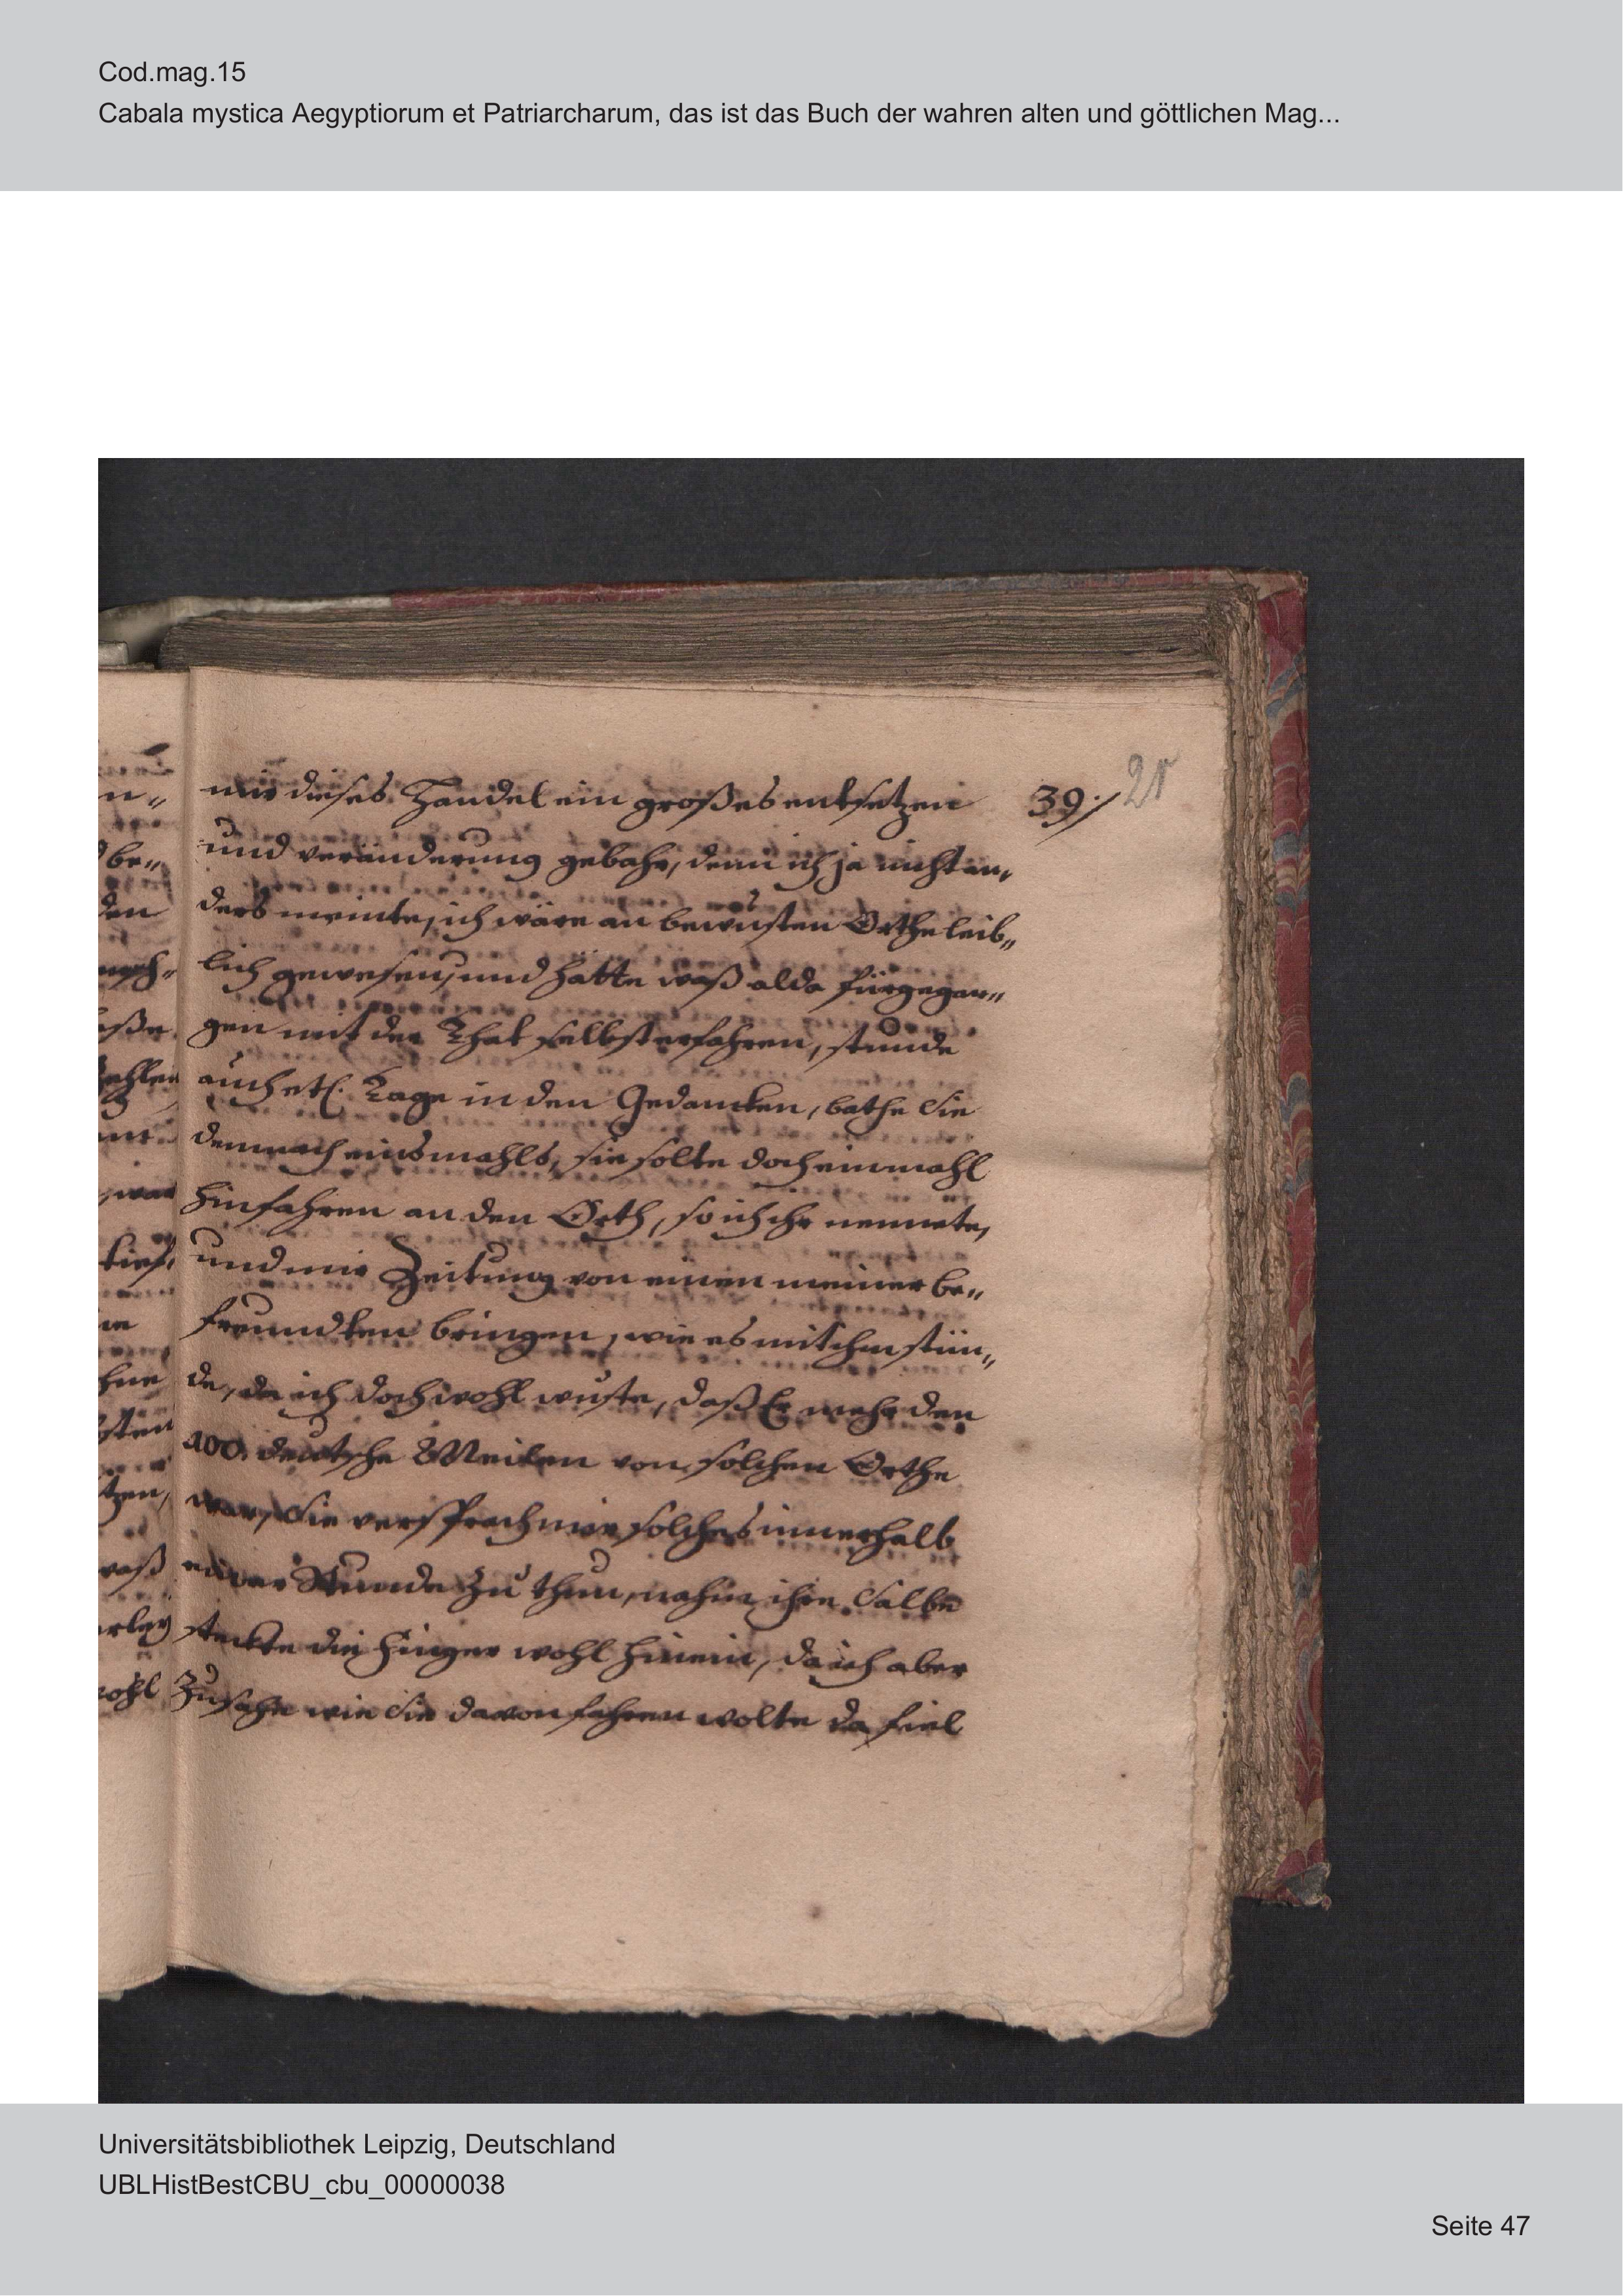 Cod.mag.15
Cabala mystica Aegyptiorum et Patriarcharum, das ist das Buch der wahren alten und göttlichen Mag...
39./
mir dieses Handel ein großes entsetzen
und veränderung gebahr, denn ich ja nicht an„
ders meinte, ich wäre an bewusten Orthe leib„
lich gewesen, und hätte waß alda fürgegan„
gen mit der That selbst erfahren, stunde
auch etl. Tage in den Gedancken, bathe Sie
demnach einsmahls, sie solte doch einmahl
hinfahren an den Orth, so ich ihr nennete,
und mir Zeitung von einen meiner be„
freundten bringen, wie es mit ihm stün„
de, da ich doch wohl wuste, daß Er mehr den
100. deutsche Meilen von solchen Orthe
war, Sie versprach mir solches innerhalb
einer Stunde zu thun, nahm ihre Salbe
steckte die Finger wohl hinein, da ich aber
Zusahe wie Sie davon fahren wolte da fiel
Universitätsbibliothek Leipzig, Deutschland
UBLHistBestCBU_cbu_00000038
Seite 47